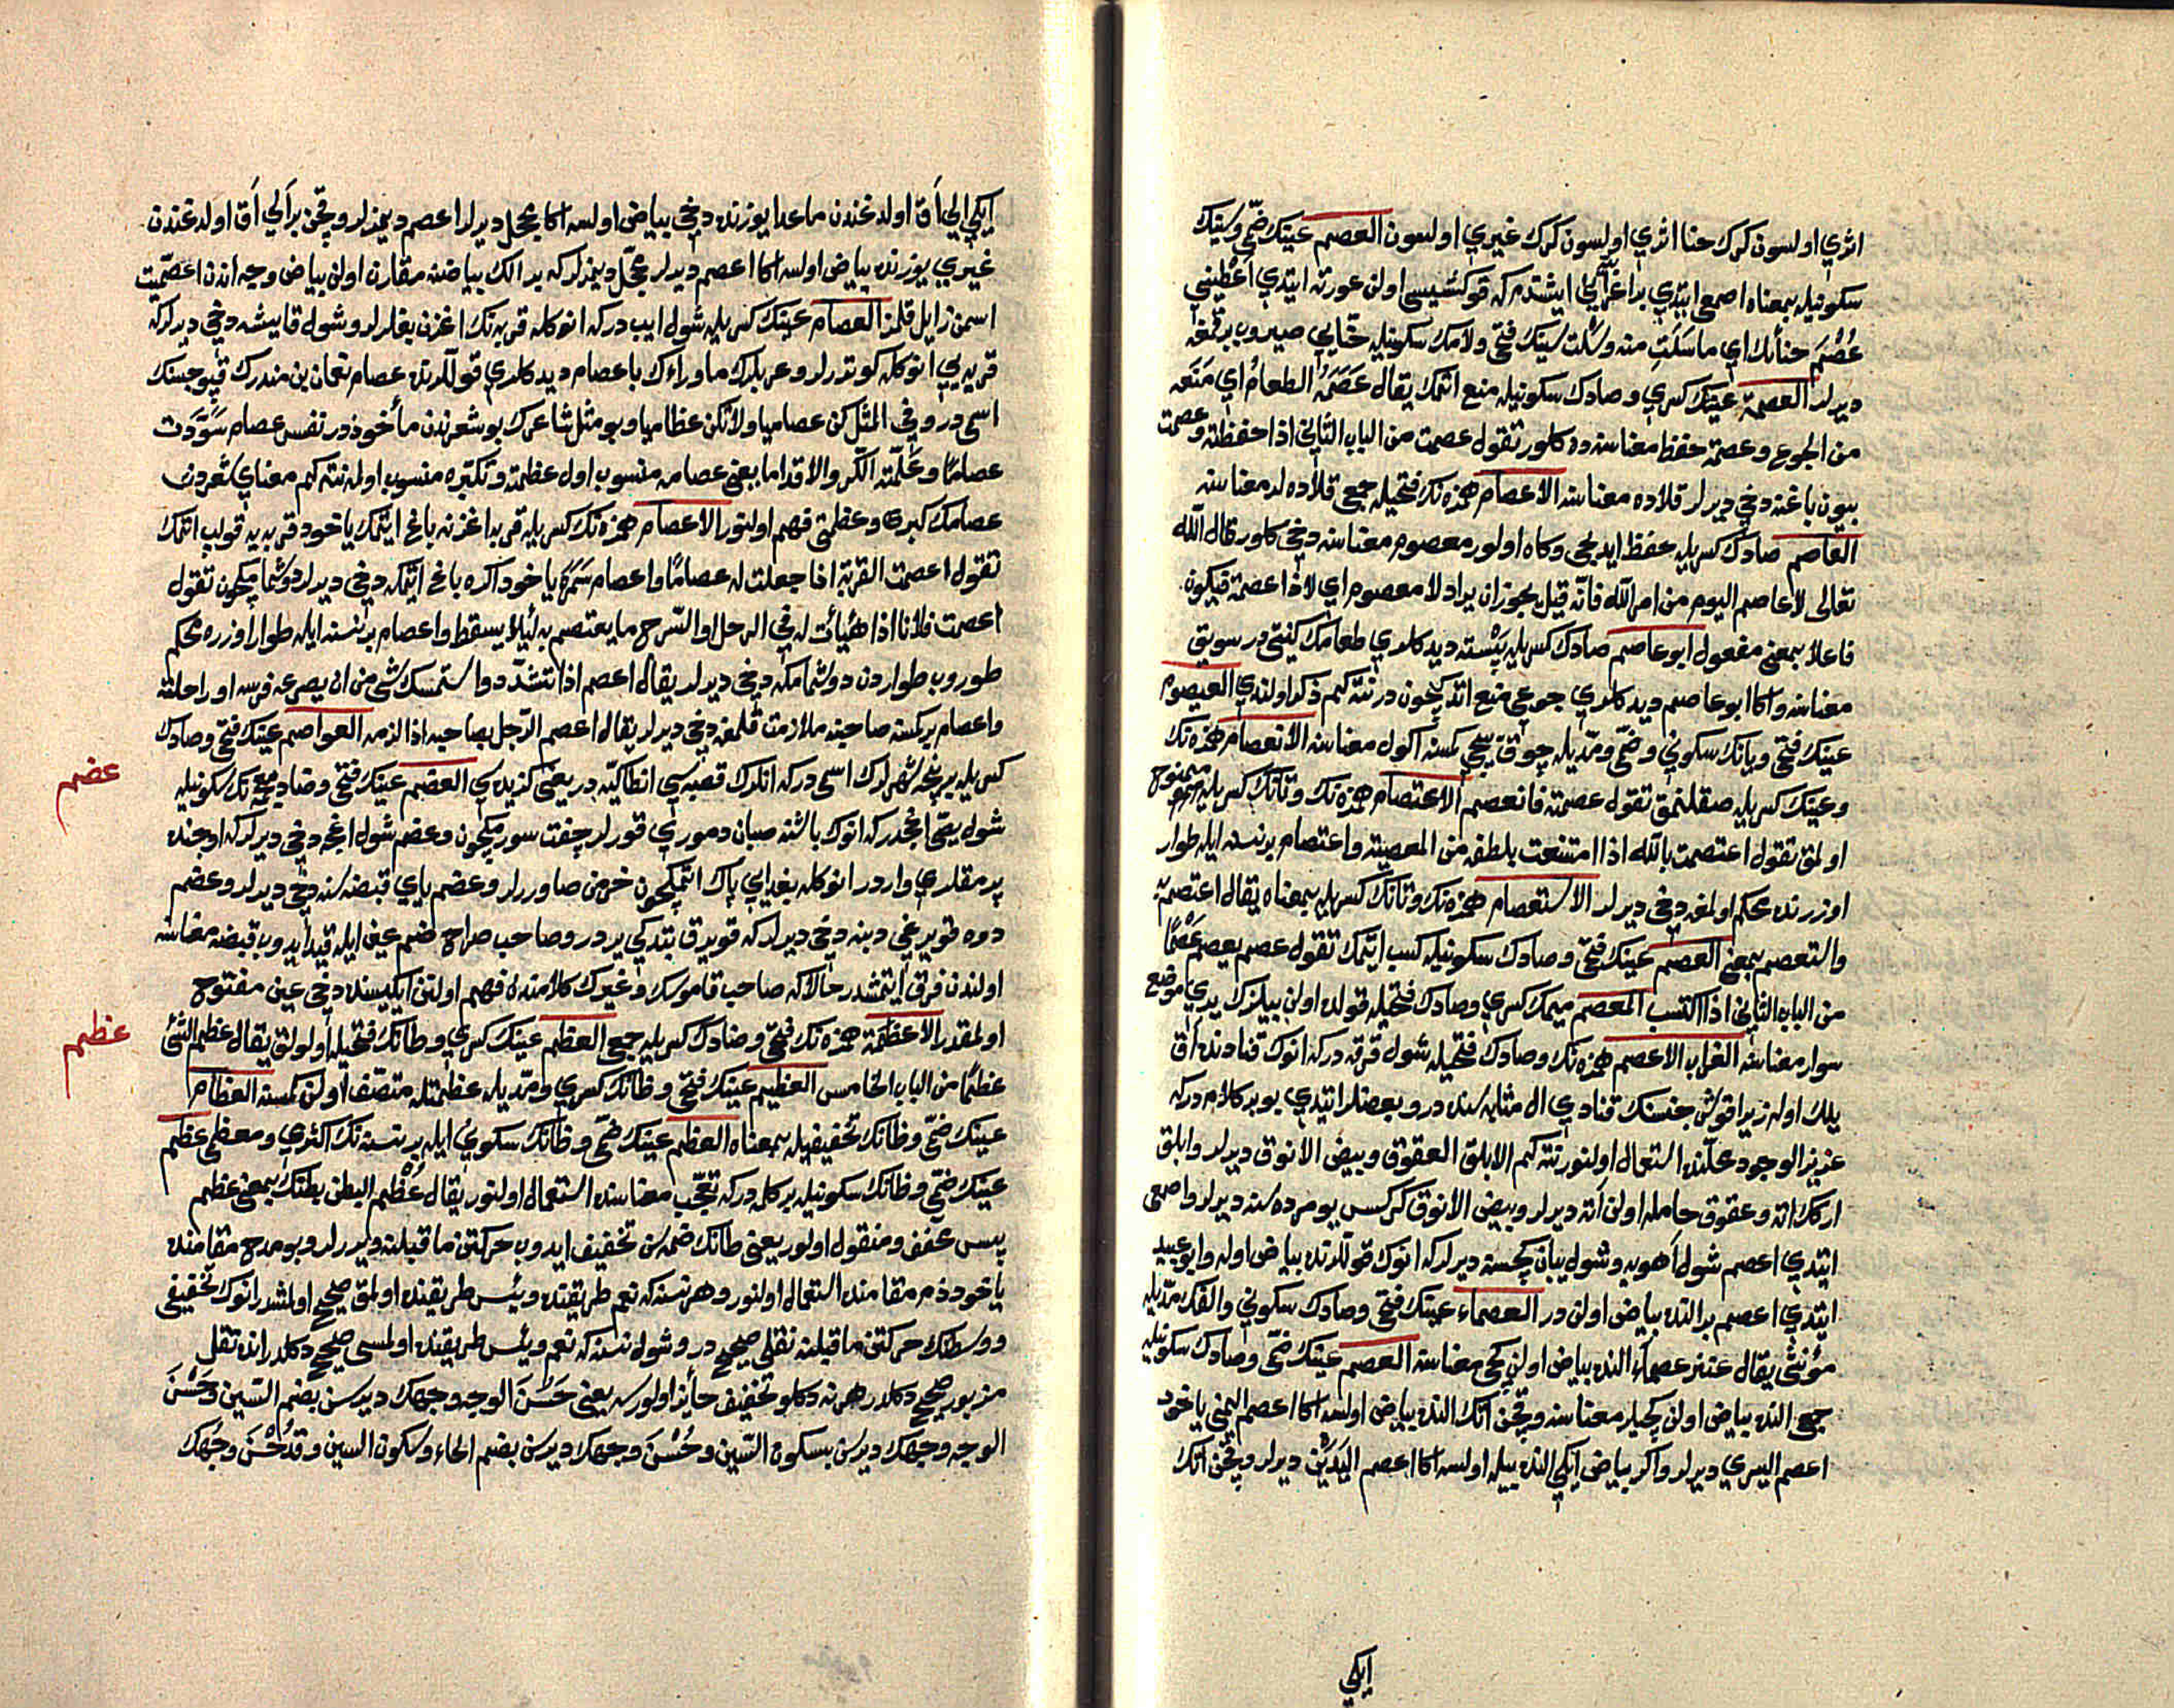 اثري اولسون كرك حنا اثري اولسون كرك غيري اولسون العصم عينك ضمّي وسينك
سكونيله بمعناه اصمعي ايتدي بر اعرابي ايشتدم كه قوكشيسي اولن عورته ايتدي اعطيني
عُصُمَ حنأئك اي ما سَلَتِ منه وسَلْت سينك فتحي ولامك سكونيله حنّايي صيروب برقمغه
ديرلر العصمة عينك كسري وصادك سكونيله منع اتمك يقال عَصَمَهُ الطعامُ اي مَنَعه
من الجوع وعصمة حفظ معناسنه ده كلور تقول عصمت من الباب الثاني اذا حفظته وعصمت
بيون باغنه دخي ديرلر قلاده معناسنه الاعصام همزه نك فتحيله جمعي قلاده لر معناسنه
العاصم صادك كسريله حفظ ايديجي وكاه اولور معصوم معناسنه دخي كلور قال الله
تعالى لا عاصم اليوم من امر الله فانّه قيل يجوز ان يراد لا معصوم اي لا ذا عصمة فيكون
فاعلا بمعنى مفعول ابو عاصم صادك كسريله پِسْته ديدكلري طعامك كنيتي در سويق
معناسنه واكا ابو عاصم ديدكلري جوعي منع اتدكيچون در نته كيم ذكر اولندي العيصوم
عينك فتحي ويانك سكوني وضمّي ومدّيله چوق ييجي كمسنه اكول معناسنه الانعصام همزه نك
وعينك كسريله صقلنمق تقول عصمته فانعصم الاعتصام همزه نك وتانك كسريله ممنوع
اولمق تقول اعتصمت بالله اذا امتنعت بلطفه من المعصية واعتصام بر نسنه ايله طوار
اوزرنده محكم اولمغه دخي ديرلر الاستعصام همزه نك وتانك كسريله بمعناه يقال اعتصم به
والتعصم بمعنى العصم عينك فتحي وصادك سكونيله كسب ايتمك تقول عصم يعصم عَصْمًا
من الباب الثاني اذا اكتسب المعصم ميمك كسري وصادك فتحيله قولده اولن بيلزك يري موضع
سوار معناسنه الغراب الاعصم همزه نك وصادك فتحيله شول قرقه دركه انوك قنادنده آق
يلك اوله زيرا قوش جنسنك قنادي ال مثابه سنده در وبعضلر ايتدي بو بر كلام دركه
عزيز الوجود محلّنده استعمال اولنور نته كيم الابلق العقوق وبيض الانوق ديرلر وابلق
اركك اته وعقوق حامله اولن اته ديرلر وبيض الانوق كركس يومرده سنه ديرلر واصمعي
ايتدي اعصم شول آهويه وشول يبان كچيسنه ديرلركه انوك قوللرنده بياض اوله وابو عبيد
ايتدي اعصم بر النده بياض اولن در العصماء عينك فتحي وصادك سكوني والفك مدّيله
مؤنثي يقال عنز عصماء النده بياض اولن كچي معناسنه العصم عينك ضمّي وصادك سكونيله
جمعي النده بياض اولن كچيلر معناسنه وقچن اتك النده بياض اولسه اكا اعصم اليمنى ياخود
اعصم اليسرى ديرلر واكر بياض ايكي النده بيله اولسه اكا اعصم اليَدَيْن ديرلر وقچن اتك
ايكي
ايكي الي آق اولدغندن ماعدا يوزنده دخي بياض اولسه اكا محجل ديرلر اعصم ديمزلر وقچن بر الي آق اولدغندن
غيري يوزنده بياض اولسه اكا اعصم ديرلر محجّل ديمزلركه بر الك بياضنه مقارن اولن بياض وجه اندن اعصميّت
اسمن زايل قلمز العصام عينك كسريله شول ايب دركه انوكله قربه نك اغزن بغلرلر وشول قايشه دخي ديرلركه
قربه يي انوكله كوتررلر وعربلرك ما وراءك يا عصام ديدكلري قوللرنده عصام نعمان بن منذرك قپوجسنك
اسمي در وفي المثل كن عصاميا ولا تكن عظاميا وبو مثل شاعرك بو شعرندن مأخوذدر نفس عصام سَوَّدَت
عصامًا وعَلّمَته الكرّ والاقداما يعني عصامه منسوب اول عظمته وتكبّره منسوب اولمه نته كيم معناي شعردن
عصامك كبري وعظمتي فهم اولنور الاعصام همزه نك كسريله قربه اغزنه باغ ايتمك ياخود قربه يه قولپ اتمك
تقول اعصمت القربة اذا جعلت له عصامًا واعصام ياخود اكره باغ ايتمكه دخي ديرلر دوشمامكيچون تقول
اعصمت فلانا اذا هيّأت له في الرحل او السّرج ما يعتصم به ليلا يسقط واعصام بر نسنه ايله طوار اوزره محكم
طوروب طواردن دوشمامكه دخي ديرلر يقال اعصم اذا تشدّد واستمسك شيء من ان يصرعه فرسه او راحلته
واعصام بر كمسنه صاحبنه ملازمت قلمغه دخي ديرلر يقال اعصم الرّجل بصاحبه اذا لزمه العواصم عينك فتحي وصادك
كسريله بر نيچه شهرلرك اسمي دركه انلرك قصبه سي انطاكيّه در يعني كزيده سي العضم عينك فتحي وضاد معجمه نك سكونيله
عضم
شول يصّي اغجدركه انوك باشنه صبان دموري قورلر چفت سورمكيچون وعضم شول اغجه دخي ديرلركه اوجنده
پرمقلري واردر انوكله بغدايي پاك اتمكچون خرمن صاوررلر وعضم ياي قبضه سنه دخي ديرلر وعضم
دوه قويرغي دبنه دخي ديرلركه قويرق بتدكي يردر وصاحب صراح ضم عين ايله قيد ايدوب قبضه معناسنه
اولندن فرق ايتمشدر حالانكه صاحب قاموسك وغيرك كلامندن فهم اولنن ايكيسنده دخي عين مفتوح
اولمقدر الاعظمة همزه نك فتحي وضادك كسريله جمعي العظم عينك كسري وظانك فتحيله اولولق يقال عظم الشّيْ
عظم
عظمًا من الباب الخامس العظيم عينك فتحي وظانك كسري ومدّيله عظمتله متصف اولن كمسنه العظام
عينك ضمّي وظانك تخفيفيله بمعناه العظم عينك ضمّي وظانك سكوني ايله بر نسنه نك اكثري ومعظمي عظم
عينك ضمّي وظانك سكونيله بر كلمه دركه تعجّب معناسنده استعمال اولنور يقال عُظْم البطن بطنك بمعنى عظم
پس مخفف ومنقول اولور يعني ظانك ضمّه سن تخفيف ايدوب حركتن ماقبلنه ويررلر وبو مدح مقامنده
ياخود ذم مقامنده استعمال اولنور وهر نسنه كه نعم طريقنده وبئس طريقنده اولمق صحيح اولمشدر انوك تخفيفي
ووسطنك حركتن ماقبلنه نقلي صحيح در وشول نسنه كه نعم وبئس طريقنده اولمسي صحيح دكلدر انده نقل
مزبور صحيح دكلدر هر نه دكلو تخفيف جائز اولورسه يعني حَسُنَ الوجه وجهك ديرسن بضم السّين وحَسْنَ
الوجه وجهك ديرسن بسكون السّين وحُسْنَ وجهك ديرسن بضم الحاء وسكون السين وقد حُسْنَ وجهُك